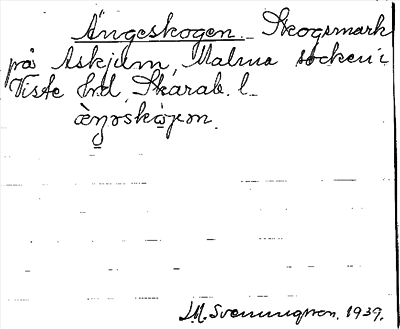 Ängeskogen. Skogsmark
på Askjilm, Malma socken i
Viste hd, Skarab. l.
æ̀ŋəskò̰γən.
J.M. Svenningson. 1939.